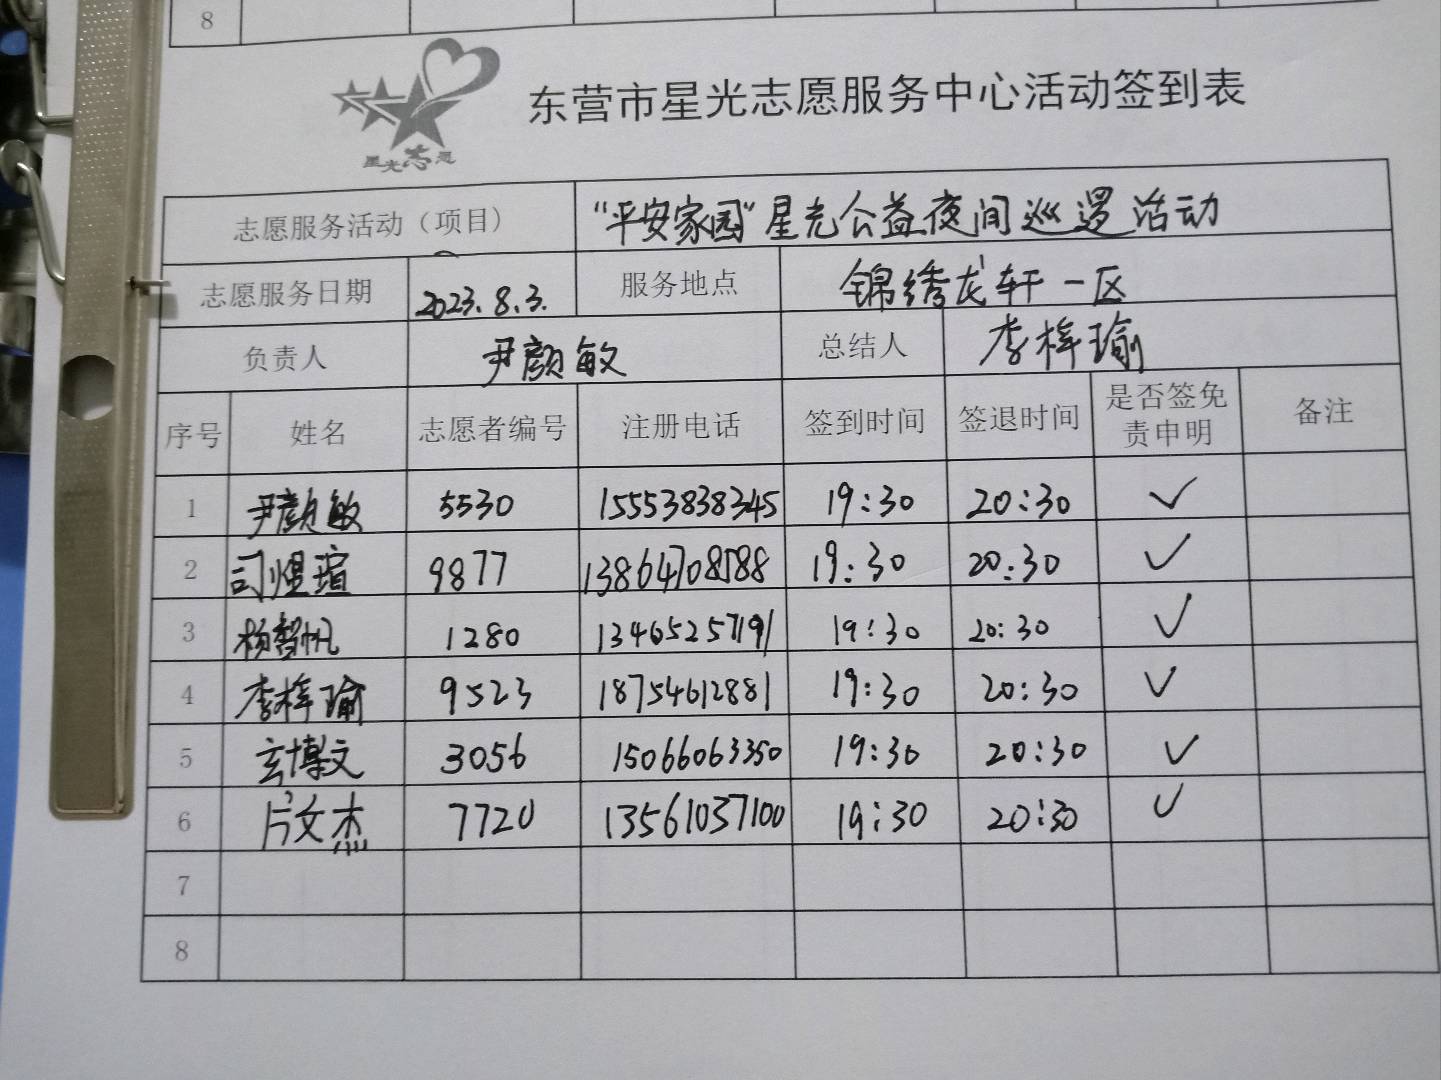 8
星光志愿
东营市星光志愿服务中心活动签到表
志愿服务活动（项目） “平安家园”星光公益夜间巡逻活动
志愿服务日期 2023.8.3. 服务地点 锦绣龙轩一区
负责人 尹颜敏 总结人 李梓瑜
序号 姓名 志愿者编号 注册电话 签到时间 签退时间 是否签免责申明 备注
1 尹颜敏 5530 15553838345 19:30 20:30 ✓
2 司煜瑄 9877 13864708588 19:30 20:30 ✓
3 杨智帆 1280 13465257191 19:30 20:30 ✓
4 李梓瑜 9523 18754612881 19:30 20:30 ✓
5 玄博文 3056 15066063350 19:30 20:30 ✓
6 片文杰 7720 13561037100 19:30 20:30 ✓
7
8